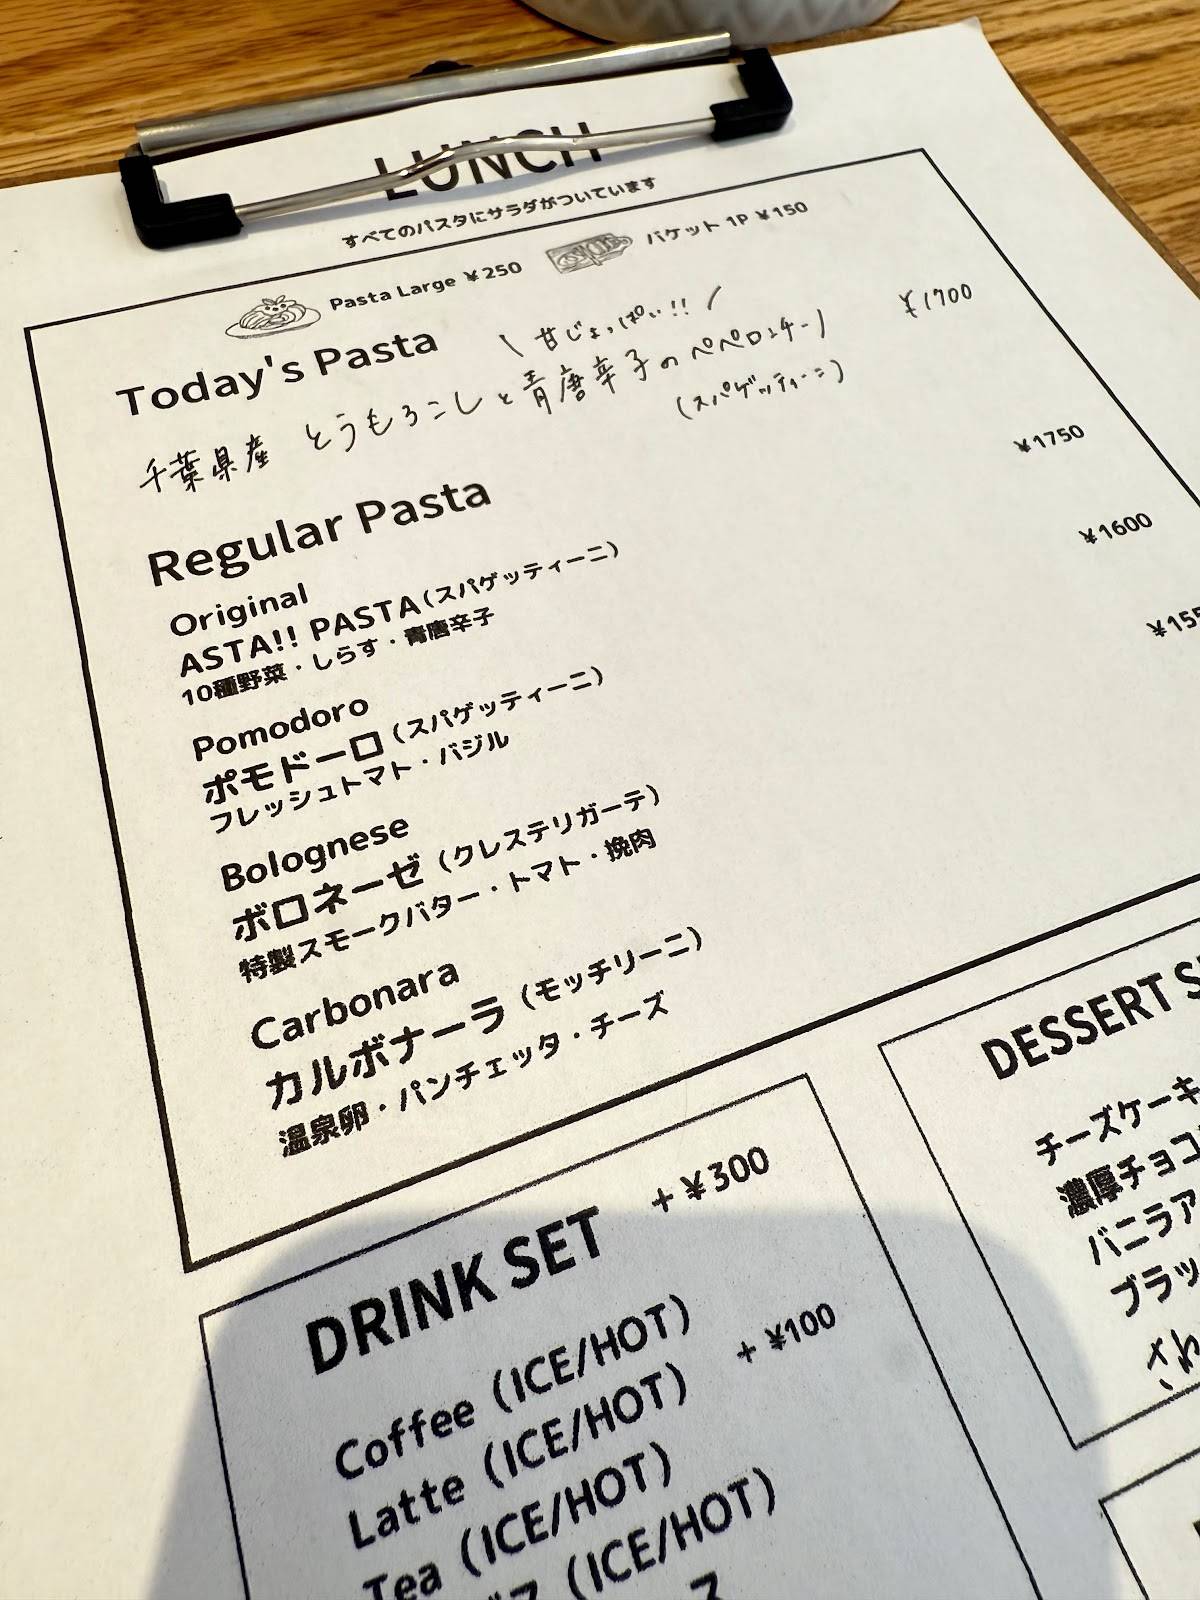 LUNCH
すべてのパスタにサラダがついています
Pasta Large ¥250
バケット 1P ¥150
Today's Pasta
\ 甘じょっぱい!! /
千葉県産 とうもろこしと青唐辛子のペペロンチーノ ¥1700
(スパゲッティーニ)
Regular Pasta
Original
ASTA!! PASTA(スパゲッティーニ) ¥1750
10種野菜・しらす・青唐辛子
Pomodoro
ポモドーロ(スパゲッティーニ) ¥1600
フレッシュトマト・バジル
Bolognese
ボロネーゼ(クレステリガーテ) ¥155
特製スモークバター・トマト・挽肉
Carbonara
カルボナーラ(モッチリーニ)
温泉卵・パンチェッタ・チーズ
DRINK SET +¥300
Coffee (ICE/HOT)
Latte (ICE/HOT) +¥100
Tea (ICE/HOT)
(ICE/HOT)
ス
DESSERT S
チーズケーキ
濃厚チョコ
バニラア
ブラッ